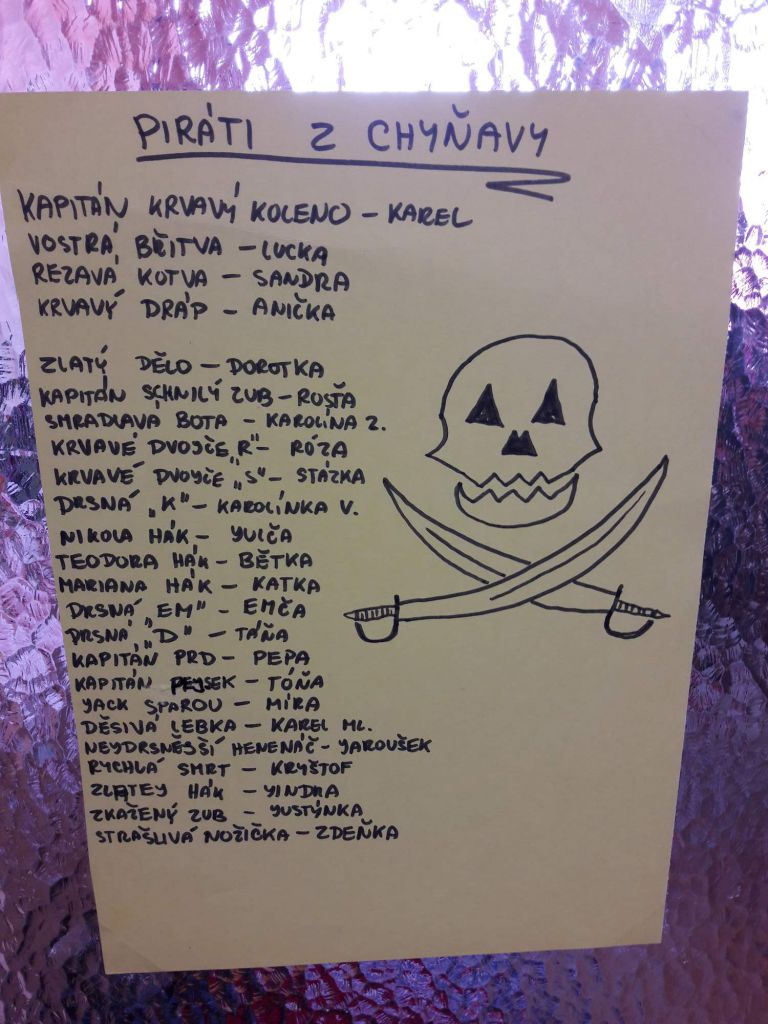 PIRÁTI Z CHYŇAVY
KAPITÁN KRVAVÝ KOLENO – KAREL
VOSTRÁ BŘITVA – LUCKA
REZAVÁ KOTVA – SANDRA
KRVAVÝ DRÁP – ANIČKA
ZLATÝ DĚLO – DOROTKA
KAPITÁN SCHNILÝ ZUB – ROSŤA
SMRADLAVÁ BOTA – KAROLÍNA Z.
KRVAVÉ DVOJČE „R" – RÓZA
KRVAVÉ DVOJČE „S" – STÁZKA
DRSNÁ „K" – KAROLÍNKA V.
NIKOLA HÁK – YULČA
TEODORA HÁK – BĚTKA
MARIANA HÁK – KATKA
DRSNÁ „EM" – EMČA
DRSNÁ „D" – TÁŇA
KAPITÁN PRD – PEPA
KAPITÁN PEJSEK – TÓŇA
YACK SPAROU – MÍRA
DĚSIVÁ LEBKA – KAREL ML.
NEYDRSNĚJŠÍ HENENÁČ – YAROUŠEK
RYCHLÁ SMRT – KRYŠTOF
ZLATEY HÁK – YINDRA
ZKAŽENÝ ZUB – YUSTÝNKA
STRAŠLIVÁ NOŽIČKA – ZDEŇKA